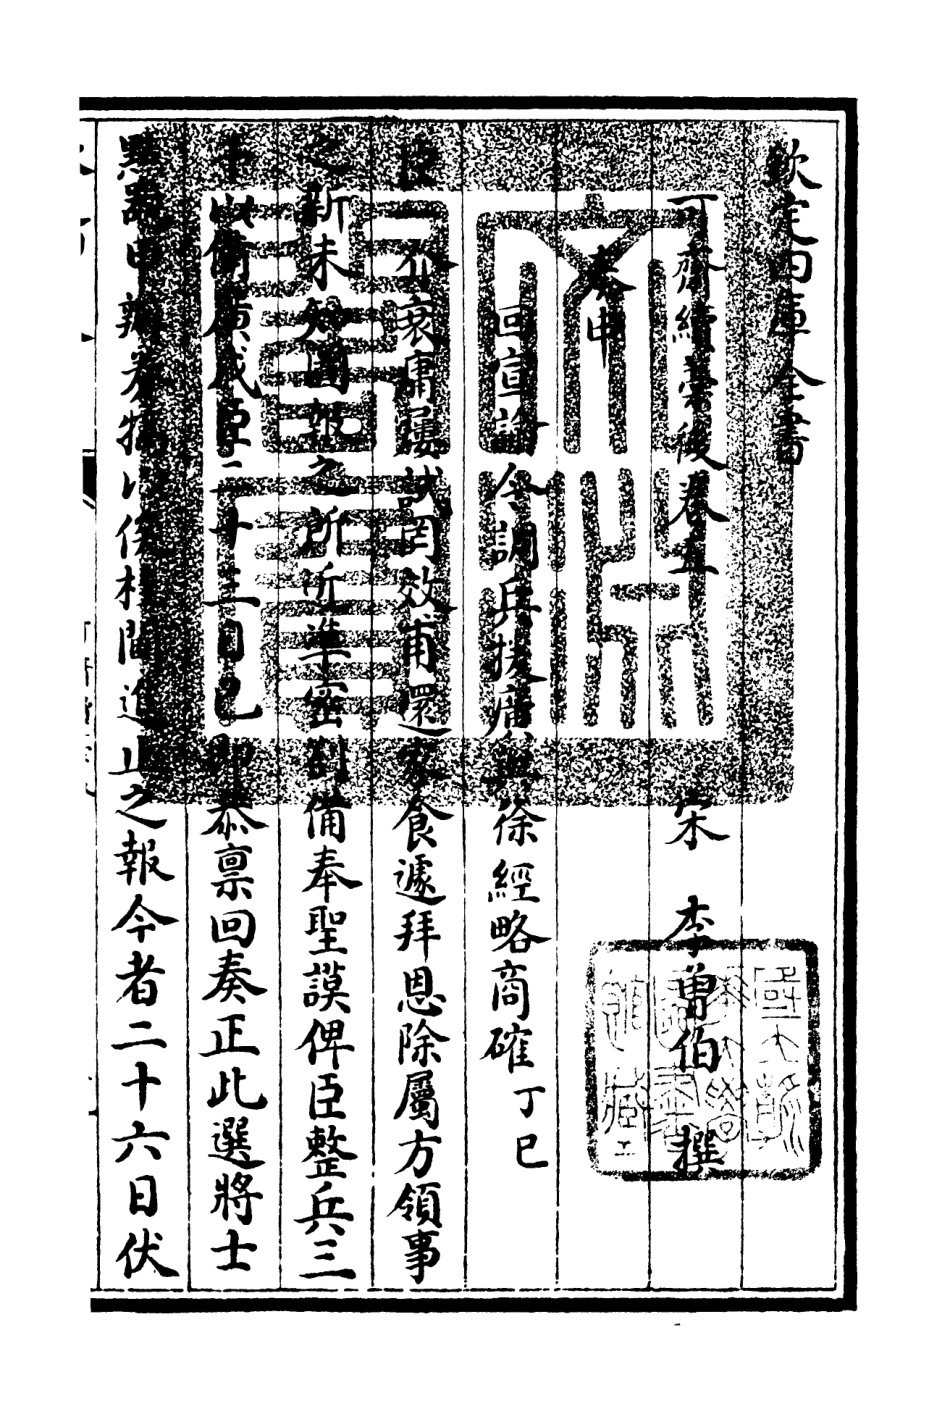 欽定四庫全書
可齋續藁後卷五 宋 李曾伯 撰
奏申
回宣諭令調兵援廣與徐經略商確 丁巳
臣一介衰庸屢試罔效甫還家食遽拜恩除屬方領事
之新未知圖報之所所準密劄備奉聖謨俾臣整兵三
千以備廣戍臣二十三日已即恭禀回奏正此選將士
點器甲辦券犒以俟桂閫進止之報今者二十六日伏